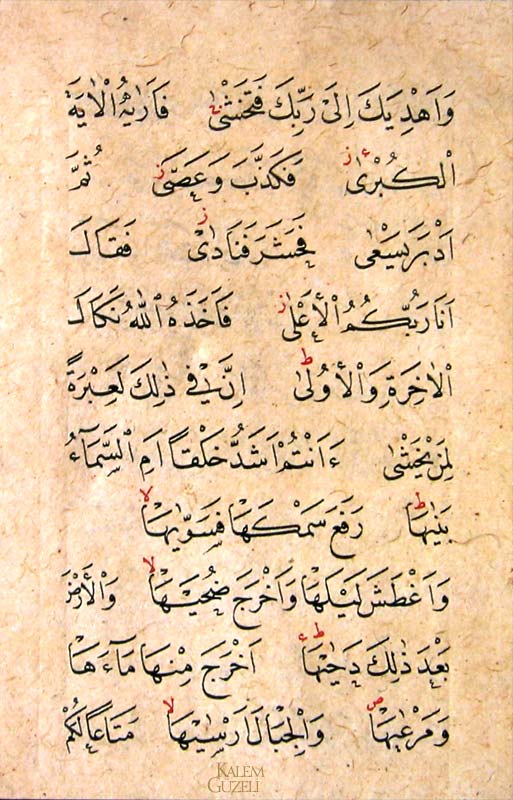 وَاَهْدِيَكَ اِلٰى رَبِّكَ فَتَخْشٰى فَاَرٰيهُ الْاٰيَةَ
الْكُبْرٰى فَكَذَّبَ وَعَصٰى ثُمَّ
اَدْبَرَ يَسْعٰى فَحَشَرَ فَنَادٰى فَقَالَ
اَنَا رَبُّكُمُ الْاَعْلٰى فَاَخَذَهُ اللّٰهُ نَكَالَ
الْاٰخِرَةِ وَالْاُولٰى اِنَّ فٖي ذٰلِكَ لَعِبْرَةً
لِمَنْ يَخْشٰى ءَاَنْتُمْ اَشَدُّ خَلْقًا اَمِ السَّمَٓاءُ
بَنٰيهَا رَفَعَ سَمْكَهَا فَسَوّٰيهَا
وَاَغْطَشَ لَيْلَهَا وَاَخْرَجَ ضُحٰيهَا وَالْاَرْضَ
بَعْدَ ذٰلِكَ دَحٰيهَا اَخْرَجَ مِنْهَا مَٓاءَهَا
وَمَرْعٰيهَا وَالْجِبَالَ اَرْسٰيهَا مَتَاعًا لَكُمْ
KALEM
GUZELI